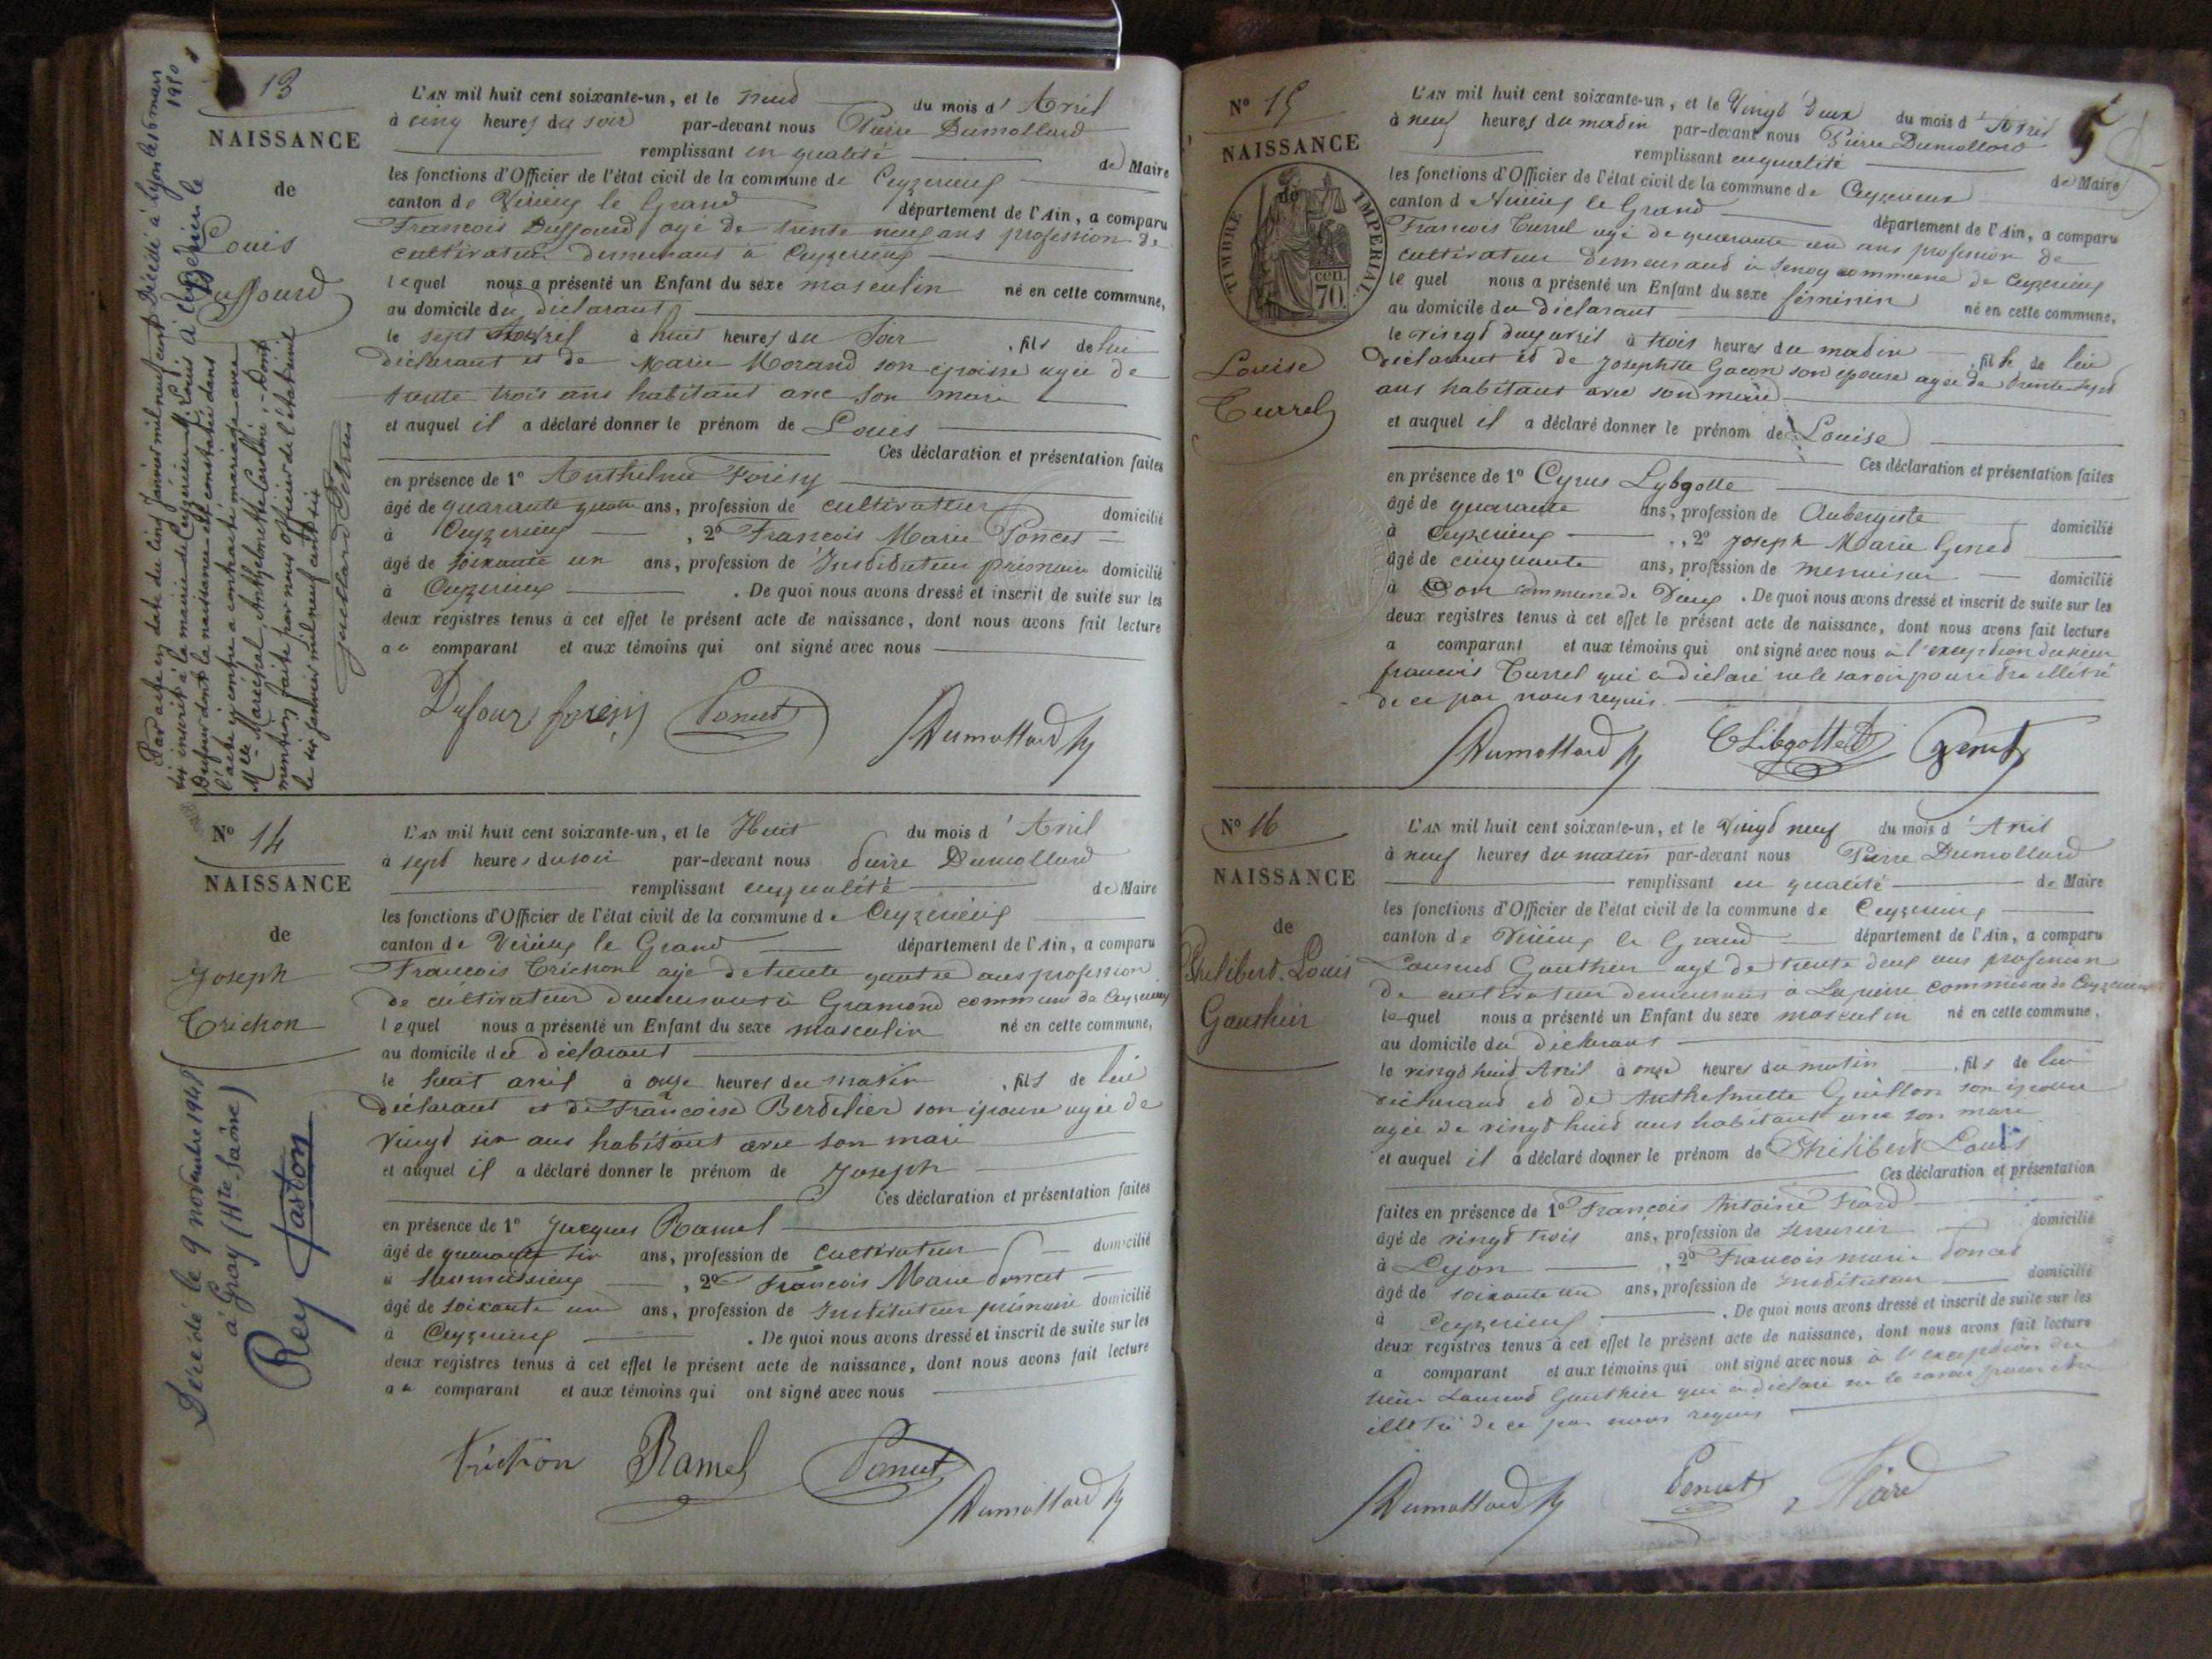 13
NAISSANCE
de
Louis
Duffourd
L'AN mil huit cent soixante-un, et le neuf du mois d'Avril
à cinq heures du soir par-devant nous Pierre Dumollard
remplissant en qualité de Maire
les fonctions d'Officier de l'état civil de la commune de Ceyzerieux
canton de Virieux le Grand département de l'Ain, a comparu
François Duffourd agé de trente neuf ans profession de
cultivateur demeurant à Ceyzerieux
lequel nous a présenté un Enfant du sexe masculin né en cette commune,
au domicile du déclarant
le sept avril à huit heures du Soir, fils de lui
déclarant et de Marie Morand son épouse agée de
trente trois ans habitant avec son mari
et auquel il a déclaré donner le prénom de Louis
Ces déclaration et présentation faites
en présence de 1º Anthelme
âgé de quarante quatre ans, profession de cultivateur domicilié
à Ceyzerieux, 2º François Marie Poncet
âgé de soixante un ans, profession de Instituteur primaire domicilié
à Ceyzerieux. De quoi nous avons dressé et inscrit de suite sur les
deux registres tenus à cet effet le présent acte de naissance, dont nous avons fait lecture
au comparant et aux témoins qui ont signé avec nous
Dufour Poncet
Dumollard
Décédé à Lyon le 26 mars
1950
Par acte en date du cinq Janvier mil neuf cent
six inscrit à la mairie de Ceyzérieu, M. Louis
Dufour dont la naissance est constatée dans
l'acte ci-contre a contracté mariage avec
Mlle Maréchal, Anthelmette Caroline; - Dont
mention faite par nous officier de l'état civil
à Ceyzérieu le
le six janvier mil neuf cent six
Nº 14
NAISSANCE
de
Joseph
Trichon
L'AN mil huit cent soixante-un, et le Huit du mois d'Avril
à sept heures du soir par-devant nous Pierre Dumollard
remplissant en qualité de Maire
les fonctions d'Officier de l'état civil de la commune de Ceyzerieux
canton de Virieux le Grand département de l'Ain, a comparu
François Trichon agé de trente quatre ans profession
de cultivateur demeurant à Gramond commune de Ceyzerieux
lequel nous a présenté un Enfant du sexe masculin né en cette commune,
au domicile du déclarant
le huit avril à onze heures du matin, fils de lui
déclarant et de Françoise Berdelier son épouse agée de
vingt six ans habitant avec son mari
et auquel il a déclaré donner le prénom de Joseph
Ces déclaration et présentation faites
en présence de 1º Jacques Ramel
âgé de quarante six ans, profession de cultivateur domicilié
à, 2º François Marie Poncet
âgé de soixante un ans, profession de Instituteur primaire domicilié
à Ceyzerieux. De quoi nous avons dressé et inscrit de suite sur les
deux registres tenus à cet effet le présent acte de naissance, dont nous avons fait lecture
au comparant et aux témoins qui ont signé avec nous
Trichon Ramel Poncet
Dumollard
Décédé le 9 novembre 1948
à Gray (Hte Saône)
Rey Gaston
Nº 15
NAISSANCE
de
TIMBRE IMPERIAL
70 cen.
Louise
Turrel
L'AN mil huit cent soixante-un, et le Vingt Deux du mois d'Avril
à neuf heures du matin par-devant nous Pierre Dumollard
remplissant en qualité de Maire
les fonctions d'Officier de l'état civil de la commune de Ceyzerieux
canton de Virieux le Grand département de l'Ain, a comparu
François Turrel agé de quarante un ans profession de
cultivateur demeurant à Senoy commune de Ceyzerieux
lequel nous a présenté un Enfant du sexe féminin né en cette commune,
au domicile du déclarant
le vingt deux avril à trois heures du matin, fille de lui
déclarant et de Josephtte Gacon son épouse agée de trente sept
ans habitant avec son mari
et auquel il a déclaré donner le prénom de Louise
Ces déclaration et présentation faites
en présence de 1º Cyrus Lybgotte
âgé de quarante ans, profession de Aubergiste domicilié
à Ceyzerieux, 2º Joseph Marie Genet
âgé de cinquante ans, profession de menuisier domicilié
à Don commune de Vieux. De quoi nous avons dressé et inscrit de suite sur les
deux registres tenus à cet effet le présent acte de naissance, dont nous avons fait lecture
a comparant et aux témoins qui ont signé avec nous à l'exception du sieur
françois Turrel qui a déclaré ne le savoir pour être illétré
de ce par nous requis
Dumollard C Libgotte Genet
Nº 16
NAISSANCE
de
Philibert Louis
Gauthier
L'AN mil huit cent soixante-un, et le Vingt neuf du mois d'Avril
à neuf heures du matin par-devant nous Pierre Dumollard
remplissant en qualité de Maire
les fonctions d'Officier de l'état civil de la commune de Ceyzerieux
canton de Virieux le Grand département de l'Ain, a comparu
Laurent Gauthier agé de trente deux ans profession
de cultivateur demeurant à Lapierre commune de Ceyzerieux
lequel nous a présenté un Enfant du sexe masculin né en cette commune,
au domicile du déclarant
le vingt huit Avril à onze heures du matin, fils de lui
déclarant et de Anthelmette Guillon son épouse
agée de vingt huit ans habitant avec son mari
et auquel il a déclaré donner le prénom de Philibert Louis
Ces déclaration et présentation
faites en présence de 1º François Antoine
âgé de vingt trois ans, profession de serrurier domicilié
à Lyon, 2º François marie Poncet
âgé de soixante un ans, profession de instituteur domicilié
à Ceyzerieux. De quoi nous avons dressé et inscrit de suite sur les
deux registres tenus à cet effet le présent acte de naissance, dont nous avons fait lecture
a comparant et aux témoins qui ont signé avec nous à l'exception du
sieur Laurent Gauthier qui a déclaré ne le savoir pour être
illétré de ce par nous requis
Dumollard Poncet